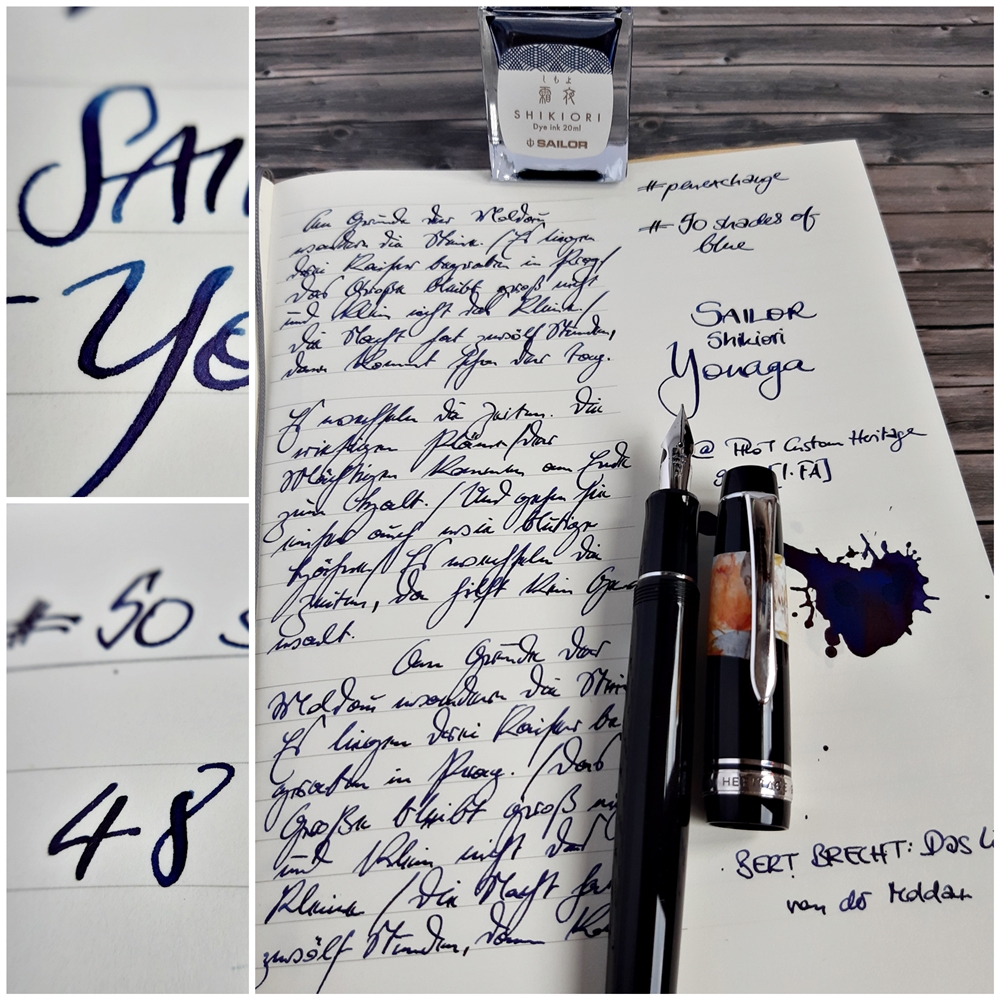 SAI
Yo
# 50 s
48
しもよ
霜夜
SHIKIORI
Dye ink 20ml
SAILOR
Am Grunde der Moldau
wandern die Steine. / Es liegen
drei Kaiser begraben in Prag /
Das Große bleibt groß nicht
und klein nicht das Kleine.
Die Nacht hat zwölf Stunden,
dann kommt schon der Tag.
Es wechseln die Zeiten. Die
riesigen Pläne / der
Mächtigen kommen am Ende
zum Halt. / Und gehen sie
einher auch wie blutige
Hähne / Es wechseln die
Zeiten, da hilft kein
walt.
Am Grunde der
Moldau wandern die
Es liegen drei Kaiser be
graben in Prag. / Das
Große bleibt groß ni
und klein nicht das
Kleine / Die Nacht ha
zwölf Stunden, dann ko
#penexchange
# 50 shades of
blue
SAILOR
Shikiori
Yonaga
@ PILOT Custom Heritage
[FA]
HERITAGE
BERT BRECHT: DAS Li
von der Moldau